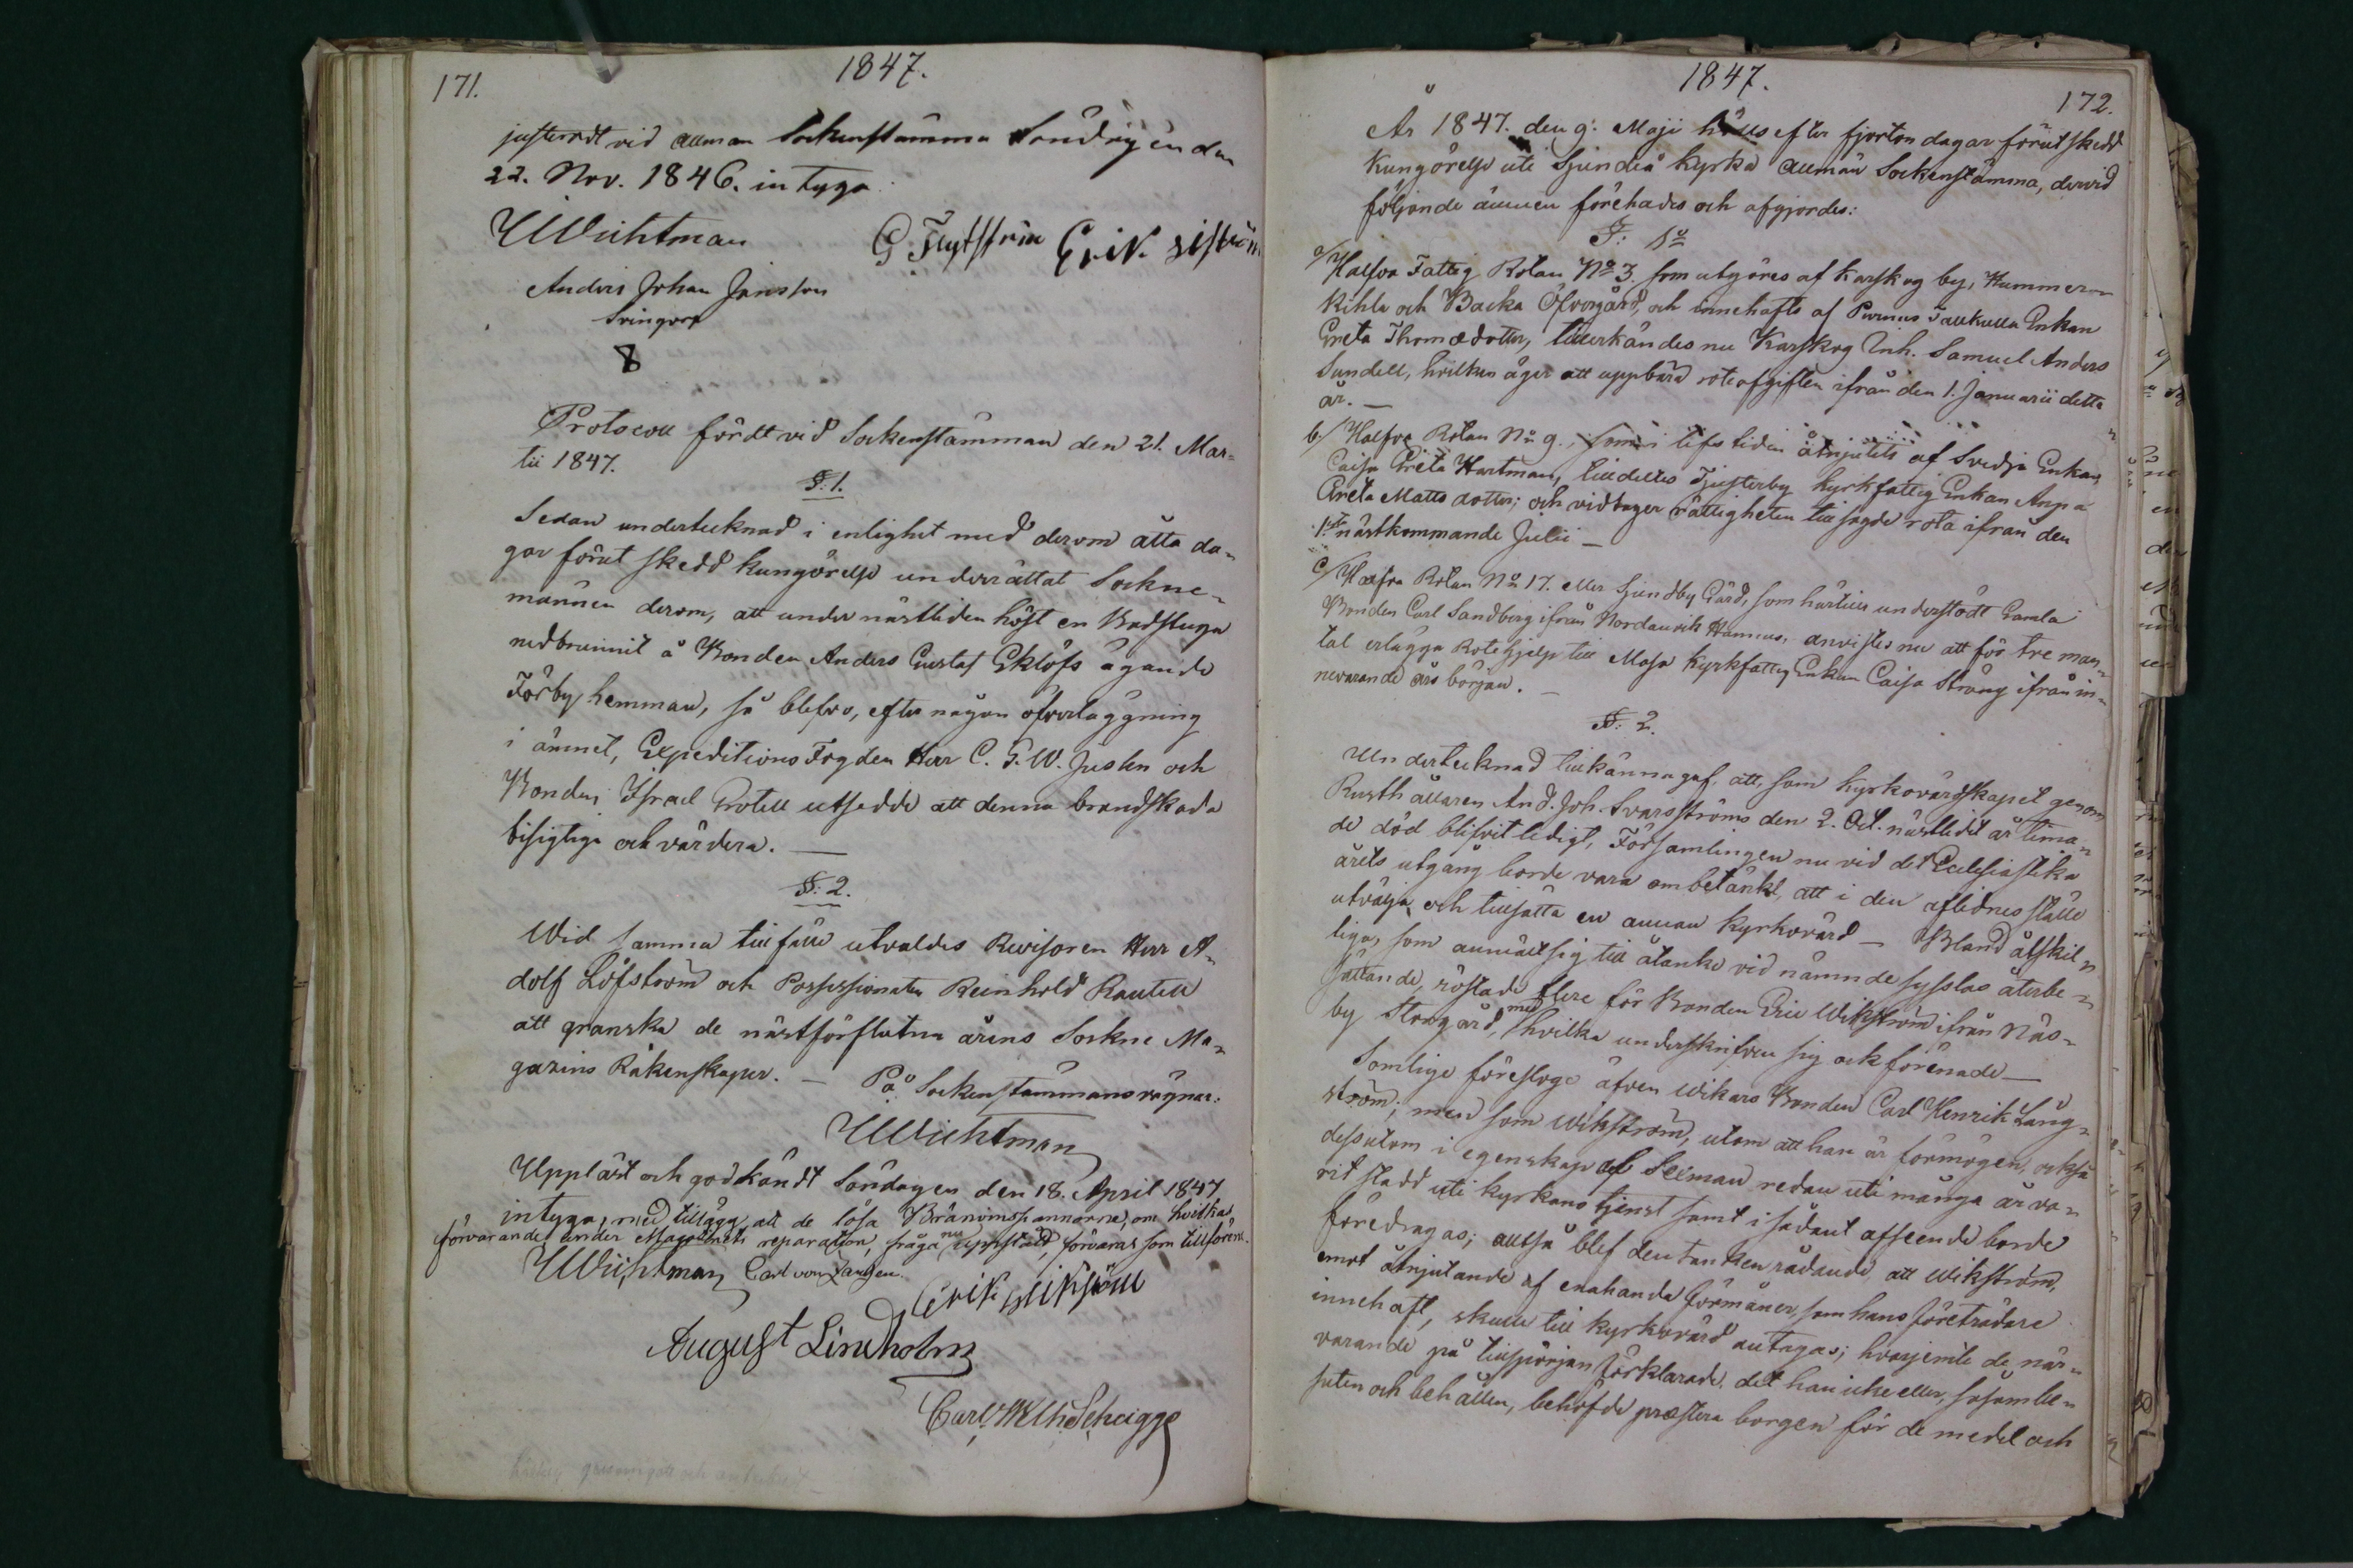 171.
1847.
justeradt vid allmän Sockenstämma Söndagen den
22. Nov. 1846. intyga
UWichtman
G Flytström Erik sjström
Anders Johan Jansson
Svingorf
8
Protocoll fördt vid Sockenstämman den 21. Mar=
tii 1847.
§: 1.
Sedan undertecknad i enlighet med derom åtta da=
gar förut skedd kungörelse underrättat Sockne=
männen derom, att under nästliden höst en Badstuga
nedbrunnit å Bonden Anders Gustaf Eklöfs ägande
Törby hemman, så blefvo, efter någon öfverläggning
i ämnet, Expeditions Fogden Herr C. G. W. Juslen och
Bonden Israel Grotell utsedde att denna brandskada
besigtiga och värdera. —
§: 2.
Wid samma tillfälle utvaldes Revisoren Herr A=
dolf Löfström och Possessionaten Reinhold Rautell
att granska de nästförflutna årens Sockne Ma=
gazins Räkenskaper. — På Sockenstämmans vägnar:
UWichtman
Uppläst och godkändt Söndagen den 18. April 1847
intyga, med tillägg, att de lösa Bränvinspannorna, om hvilkas
förvarande under Magazinets reparation, fråga nu uppstådt, förvaras som tillförene.
UWichtman Carl von Zansen.
Erik Wikström
August Lindholm
Carl Wilh Schaigge
1847.
172.
År 1847. den 9. Maji hölls efter fjorton dagar förut skedd
kungörelse uti Sjundeå kyrka allmän Sockenstämma, dervid
följande ämnen förehades och afgjordes:
§: 1o
a/ Halfva Fattig Rotan No 3. som utgöres af Karskog by, Hummer=
kihla och Backa Öfvergård, och innehafts af Purnus Tallkulla Enkan
Greta Thomædotter, tillerkändes nu Karskog Inh. Samuel Anders
Sundell, hvilken äger att uppbära roteafgiften ifrån den 1. Januarii detta
år. —
b/ Halfva Rotan No 9., som i lifstiden åtnjutits af Svedja Enkan
Caisa Greta Hartman, tilldeltes Tjusterby kyrkfattig Enkan Anna
Greta Matts dotter; och vidtager rättigheten till sagde rota ifrån den
1sta nästkommande Julii —
c/ Halfva Rotan No 17. eller Sjundby Gård, som härtills understödt Gamla
Bonden Carl Sandberg ifrån Nordanvik Hannus, anvistes nu att för tre man=
tal erlägga Rotehjelp till Masa kyrkfattig Enkan Caisa Sträng ifrån in=
nevarande års början. —
§: 2.
Undertecknad tillkännagaf, att, som kyrkovärdskapet genom
Rusthållaren And. Joh. Svarsströms den 2. Oct. nästledit år tima=
de död blifvit ledigt, Församlingen nu vid det Ecclesiastika
årets utgång borde vara om betänkt, att i den aflidnes ställe
utvälja och tillsätta en annan kyrkovärd — Bland åtskil=
liga, som anmält sig till åtanke vid nämnde sysslas återbe=
sättande, röstade flere för Bonden Eric Wikström ifrån Näs=
by Storgård, med hvilka underskrifven sig ock förenade —
Somlige föreslogo äfven Wikars Bonden Carl Henrik Lång=
ström; men som Wikström, utom att han är förmögen, också
dessutom i egenskap af Sexman redan uti många år va=
rit stadd uti kyrkans tjenst samt i sådant afseende borde
föredragas; alltså blef den tanken rådande, att Wikström,
emot åtnjutande af enahanda förmåner, som hans företrädare
innehaft, skulle till kyrkovärd antagas; hvarjemte de när=
varande på tillspörjan förklarade, det han icke eller, såsom be=
suten och behållen, behöfde præstera borgen för de medel och